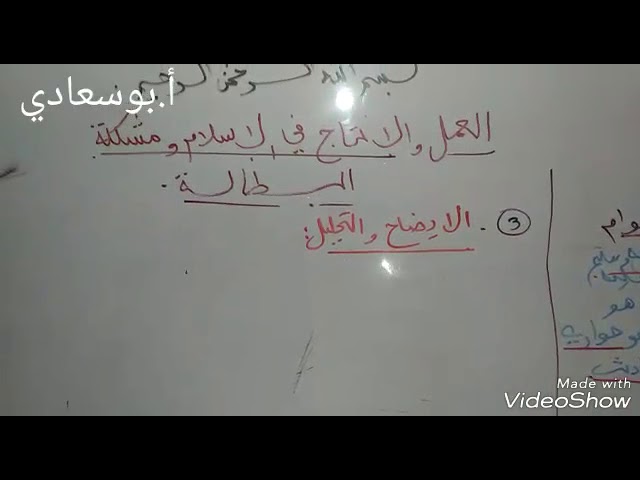 بسم الله الرحمن الرحيم
أ.بوسعادي
العمل والانتاج في الاسلام ومشكلة
البطالة.
3. الايضاح والتحليل:
هو
Made with
VideoShow